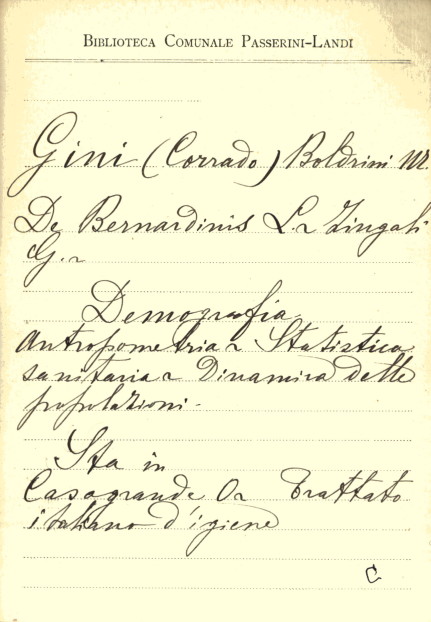 BIBLIOTECA COMUNALE PASSERINI-LANDI
Gini (Corrado) Boldrini M.
De Bernardinis L. - Zingali
G. -
Demografia
Antropometria - Statistica
sanitaria - Dinamica delle
popolazioni -
Sta in
Casagrande O - Trattato
italiano d'igiene
C